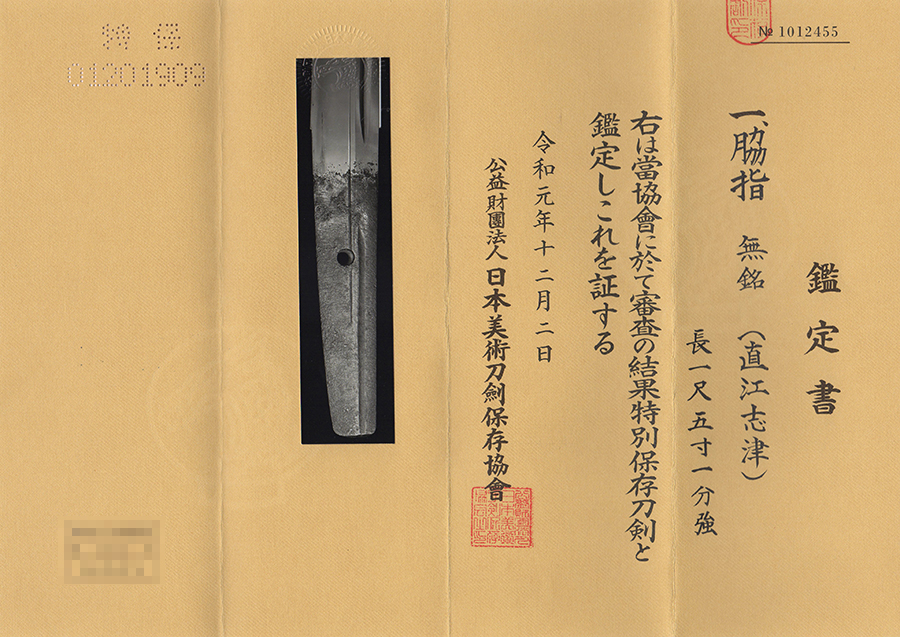 № 1012455
鑑定書
一、脇指 無銘 (直江志津)
長一尺五寸一分強
右は當協會に於て審査の結果特別保存刀剣と
鑑定しこれを証する
令和元年十二月二日
公益財團法人 日本美術刀劍保存協會
特保
01201909